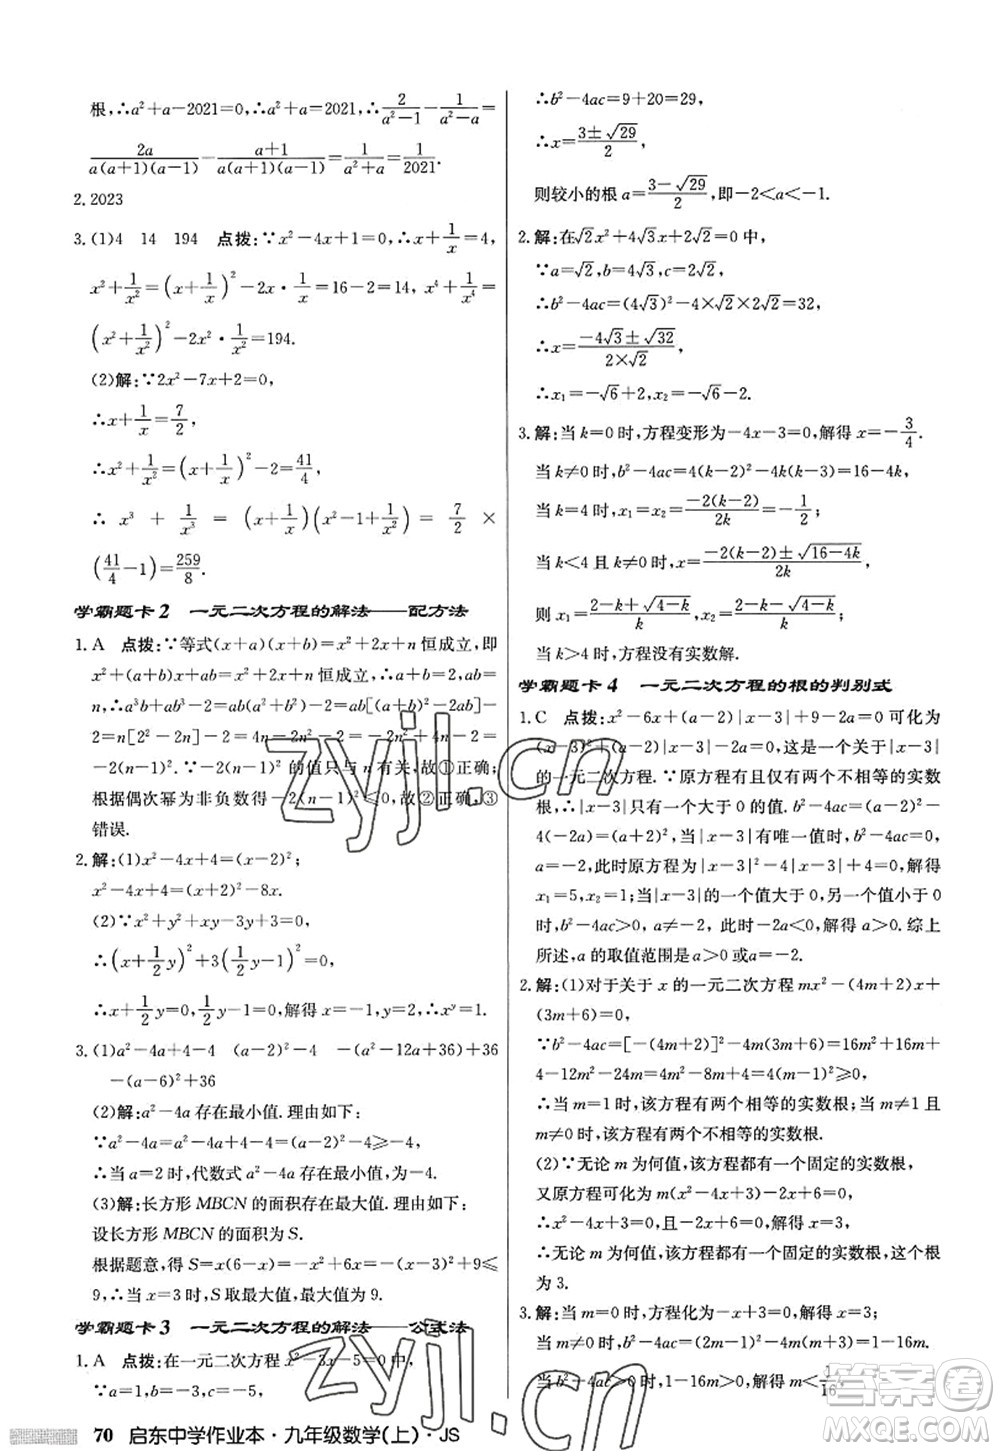 根,∴a²+a-2021=0,∴a²+a=2021,∴2/(a²-1)-1/(a²-a)=
2a/(a(a+1)(a-1))-(a+1)/(a(a+1)(a-1))=1/(a²+a)=1/2021.
2.2023
3.(1)4 14 194 点拨:∵x²-4x+1=0,∴x+1/x=4,
x²+1/x²=(x+1/x)²-2x·1/x=16-2=14,x⁴+1/x⁴=
(x²+1/x²)²-2x²·1/x²=194.
(2)解:∵2x²-7x+2=0,
∴x+1/x=7/2,
∴x²+1/x²=(x+1/x)²-2=41/4,
∴x³+1/x³=(x+1/x)(x²-1+1/x²)=7/2×
(41/4-1)=259/8.
学霸题卡2 一元二次方程的解法——配方法
1.A 点拨:∵等式(x+a)(x+b)=x²+2x+n恒成立,即
x²+(a+b)x+ab=x²+2x+n恒成立,∴a+b=2,ab=
n,∴a³b+ab³-2a²b²=ab[(a+b)²-4ab]=n(2²-4n)
=2n[1-(n-1)²]
≤2.∵-2(n-1)²≤0的值只与n有关,故①正确;
根据偶次幂为非负数得-2(n-1)²≤0,故②正确,③
错误.
2.解:(1)x²-4x+4=(x-2)²;
x²-4x+4=(x+2)²-8x.
(2)∵x²+y²+xy-3y+3=0,
∴(x+1/2y)²+3(1/2y-1)²=0,
∴x+1/2y=0,1/2y-1=0,解得x=-1,y=2,∴xʸ=1.
3.(1)a²-4a+4-4 (a-2)²-4 -(a²-12a+36)+36
-(a-6)²+36
(2)解:a²-4a存在最小值.理由如下:
∵a²-4a=a²-4a+4-4=(a-2)²-4≥-4,
∴当a=2时,代数式a²-4a存在最小值,为-4.
(3)解:长方形MBCN的面积存在最大值.理由如下:
设长方形MBCN的面积为S.
根据题意,得S=x(6-x)=-x²+6x=-(x-3)²+9≤
9,∴当x=3时,S取最大值,最大值为9.
学霸题卡3 一元二次方程的解法——公式法
1.A 点拨:在一元二次方程x²-3x-5=0中,
∵a=1,b=-3,c=-5,
∴b²-4ac=9+20=29,
∴x=(3±√29)/2,
则较小的根a=(3-√29)/2,即-2<a<-1.
2.解:在√2x²+4√3x+2√2=0中,
∵a=√2,b=4√3,c=2√2,
∴b²-4ac=(4√3)²-4×√2×2√2=32,
∴x=(-4√3±√32)/(2×√2),
∴x₁=-√6+2,x₂=-√6-2.
3.解:当k=0时,方程变形为-4x-3=0,解得x=-3/4.
当k≠0时,b²-4ac=4(k-2)²-4k(k-3)=16-4k,
当k=4时,x₁=x₂=-2(k-2)/2k=-1/2;
当k<4且k≠0时,x=(-2(k-2)±√(16-4k))/2k,
则x₁=(2-k+√(4-k))/k,x₂=(2-k-√(4-k))/k;
当k>4时,方程没有实数解.
学霸题卡4 一元二次方程的根的判别式
1.C 点拨:x²-6x+(a-2)|x-3|+9-2a=0可化为
(x-3)²+(a-2)|x-3|-2a=0,这是一个关于|x-3|
的一元二次方程.∵原方程有且仅有两个不相等的实数
根,∴|x-3|只有一个大于0的值.b²-4ac=(a-2)²-
4(-2a)=(a+2)²≥0,当|x-3|有唯一值时,解得
a=-2,此时原方程为|x-3|²-4|x-3|+4=0,解得
x₁=5,x₂=1;当|x-3|的一个值大于0,另一个值小于0
时,b²-4ac>0,a≠-2,此时-2a<0,解得a>0.综上
所述,a的取值范围是a>0或a=-2.
2.解:(1)对于关于x的一元二次方程mx²-(4m+1)x+
(3m+6)=0,
∵b²-4ac=[-(4m+2)]²-4m(3m+6)=16m²+16m+
4-12m²-24m=4m²-8m+4=4(m-1)²≥0,
∴当m=1时,该方程有两个相等的实数根;当m≠1且
m≠0时,该方程有两个不相等的实数根.
(2)∵无论m为何值,该方程一定有一个固定的实数根,
又原方程可化为m(x²-4x+3)-2x+6=0,
∴x²-4x+3=0且-2x+6=0,解得x=3,
∴无论m为何值,该方程一定有一个固定的实数根,这个根
为3.
3.解:当m=0时,该方程为x-3=0,解得x=3;
当m≠0时,b²-4ac=(2m-1)²-4m(m-3)=1-16m.
当方程没有实数根时,1-16m<0,解得m<1/16;
70 启东中学作业本·九年级数学(上)·JS
zyjl.cn
zyjl.cn
答案圈
MXQE.COM